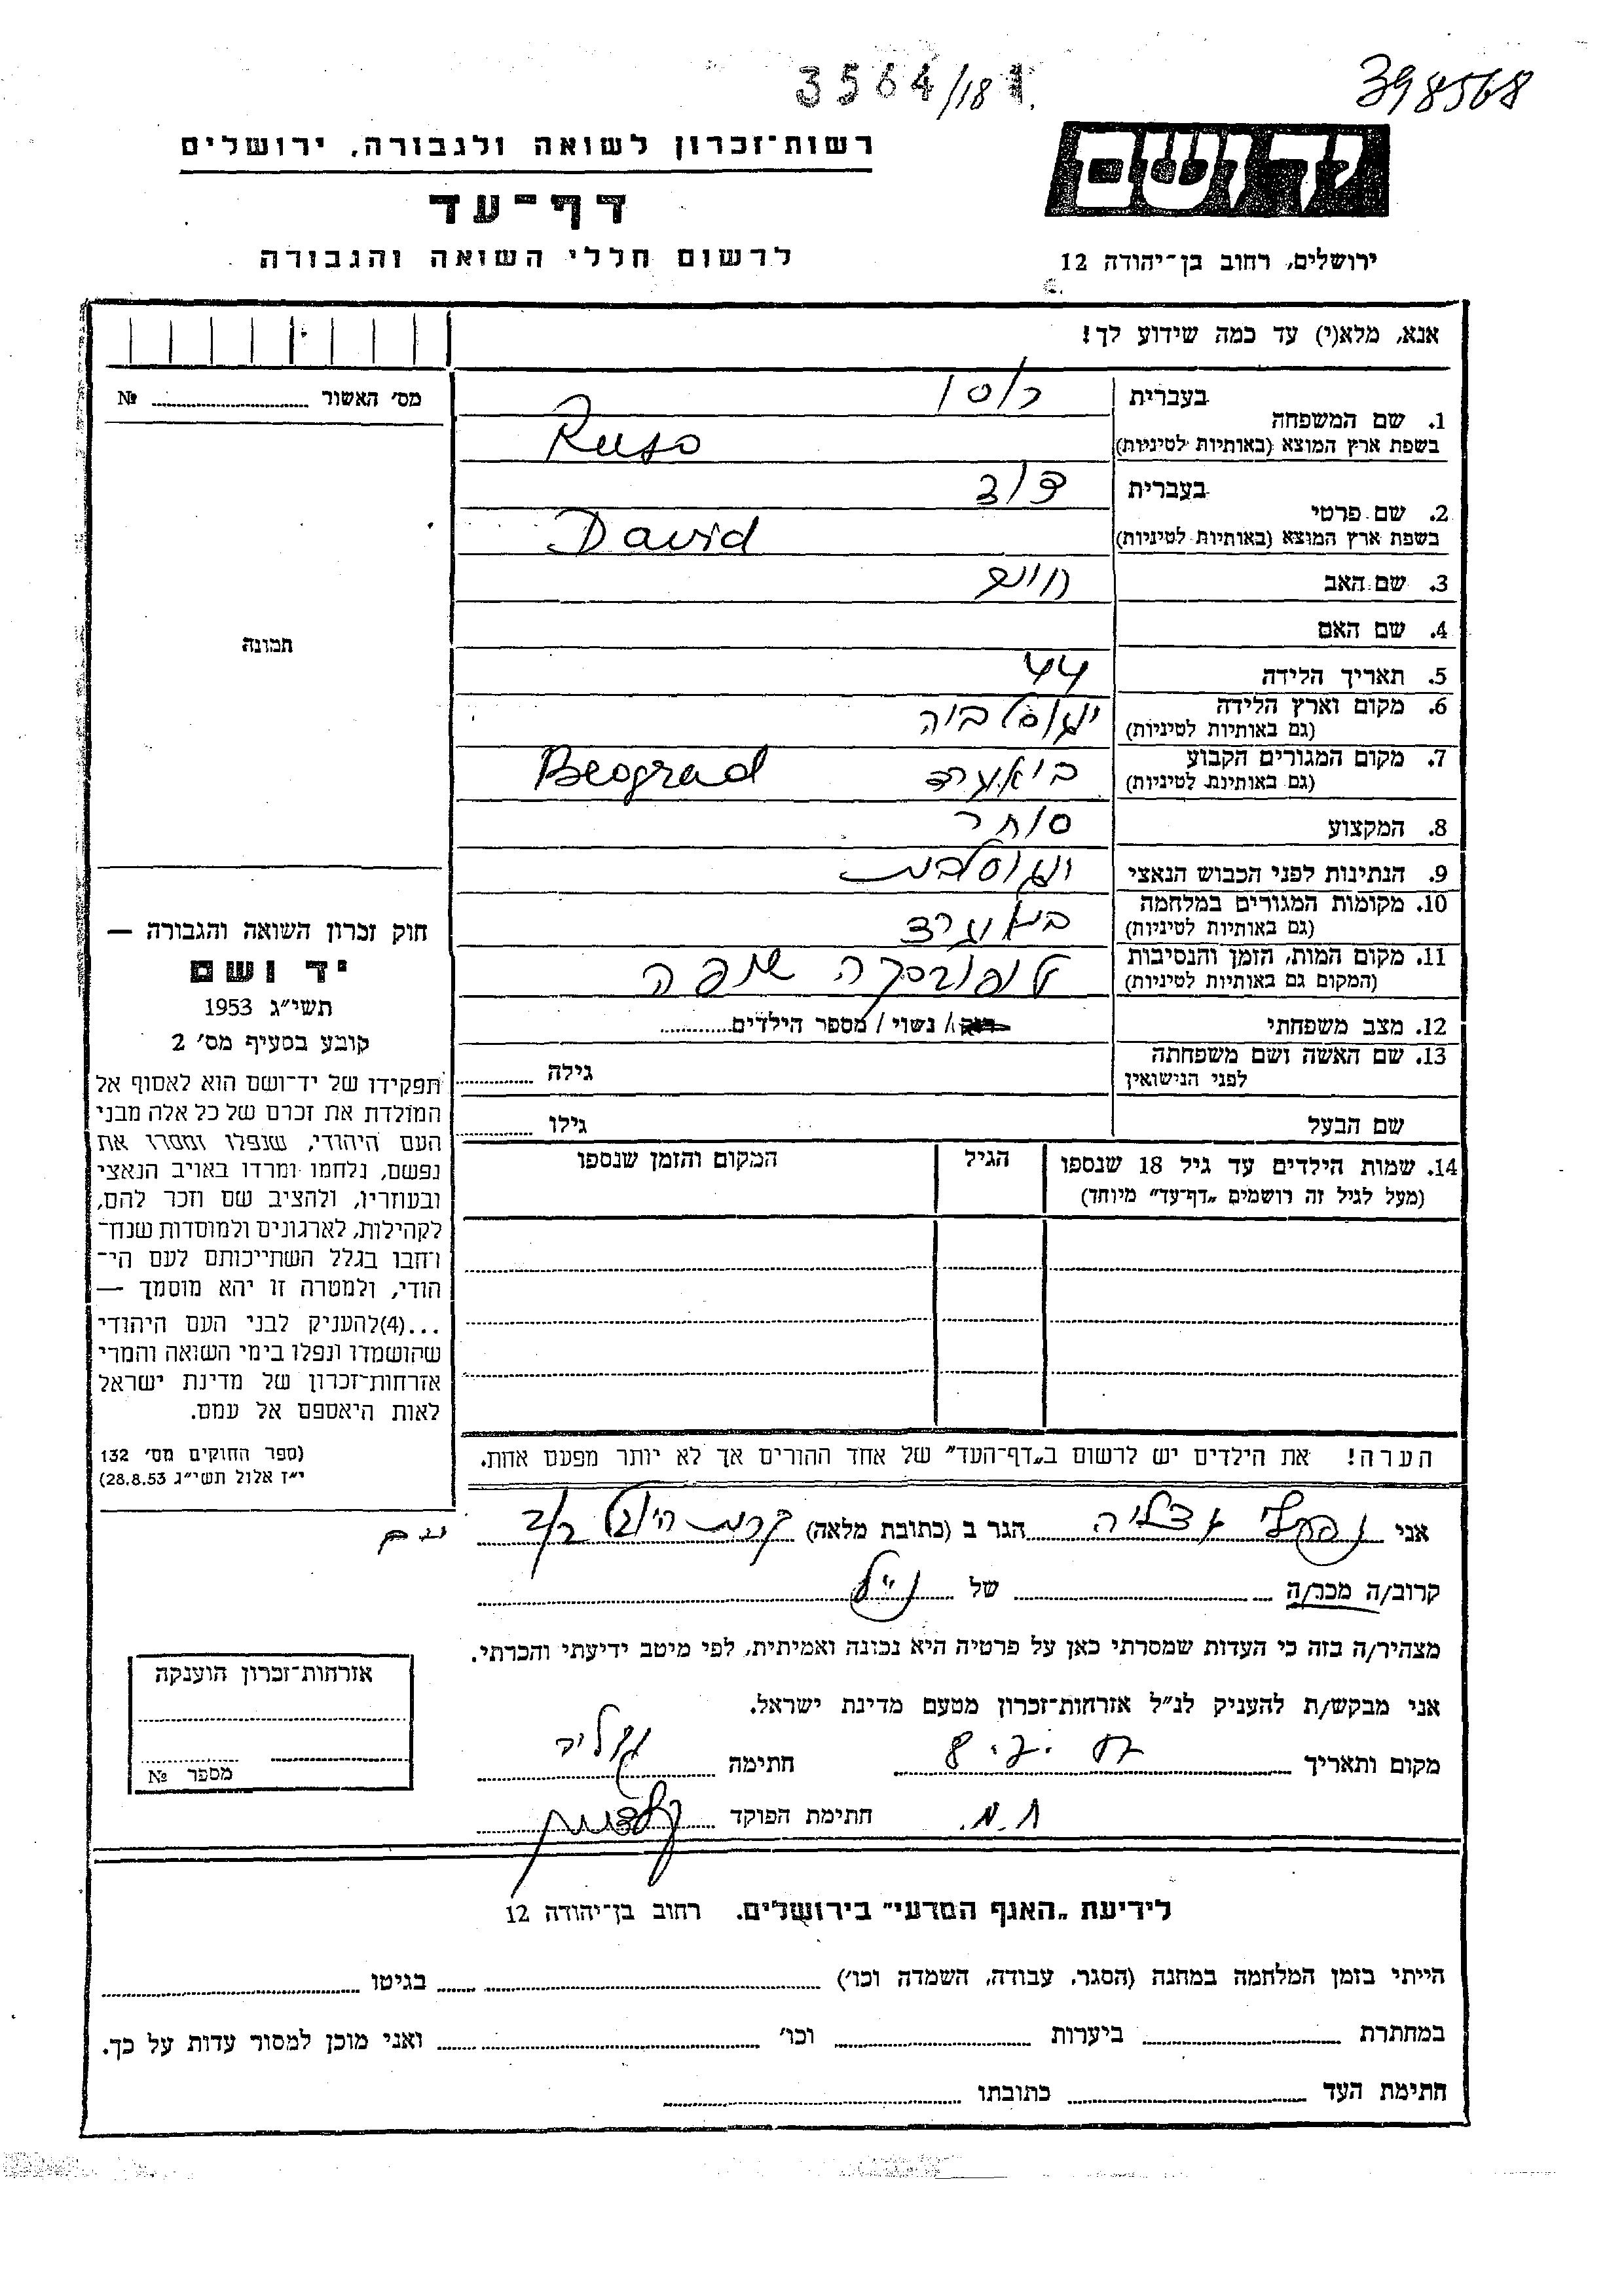 3564/181.
398568
רשות־זכרון לשואה ולגבורה, ירושלים
יד ושם
דף־עד
לרשום חללי השואה והגבורה
ירושלים, רחוב בן־יהודה 12
אנא, מלא(י) עד כמה שידוע לך!
מס׳ האשור № 
1. שם המשפחה
בעברית רוסו
בשפת ארץ המוצא (באותיות לטיניות) Ruso
2. שם פרטי
בעברית דוד
בשפת ארץ המוצא (באותיות לטיניות) David
3. שם האב חיים
4. שם האם
5. תאריך הלידה 44
6. מקום וארץ הלידה יוגוסלביה
(גם באותיות לטיניות)
7. מקום המגורים הקבוע Beograd
(גם באותיות לטיניות)
8. המקצוע סוחר
9. הנתינות לפני הכבוש הנאצי יוגוסלבית
10. מקומות המגורים במלחמה
(גם באותיות לטיניות)
11. מקום המות, הזמן והנסיבות טופובסקה שופה
(המקום גם באותיות לטיניות)
12. מצב משפחתי רוק/ נשוי / מספר הילדים
13. שם האשה ושם משפחתה גילה
לפני הנישואין
שם הבעל גילו
14. שמות הילדים עד גיל 18 שנספו הגיל המקום והזמן שנספו
(מעל לגיל זה רושמים „דף־עד” מיוחד)
הערה! את הילדים יש לרשום ב„דף־העד” של אחד ההורים אך לא יותר מפעם אחת.
תמונה
חוק זכרון השואה והגבורה —
יד ושם
תשי״ג 1953
קובע בסעיף מס׳ 2
תפקידו של יד־ושם הוא לאסוף אל
המולדת את זכרם של כל אלה מבני
העם היהודי, שנפלו ומסרו את
נפשם, נלחמו ומרדו באויב הנאצי
ובעוזריו, ולהציב שם וזכר להם,
לקהילות, לארגונים ולמוסדות שנח־
רחבו בגלל השתייכותם לעם הי־
הודי, ולמטרה זו יהא מוסמך —
...(4)להעניק לבני העם היהודי
שהושמדו ונפלו בימי השואה והמרי
אזרחות־זכרון של מדינת ישראל
לאות היאספם אל עמם.
(ספר החוקים מס׳ 132
י״ז אלול תשי״ג 28.8.53)
אני נפתלי הגר ב (כתובת מלאה) קרית היובל
קרוב/ה מכר/ה של נ״ל
מצהיר/ה בזה כי העדות שמסרתי כאן על פרטיה היא נכונה ואמיתית, לפי מיטב ידיעתי והכרתי.
אני מבקש/ת להעניק לנ״ל אזרחות־זכרון מטעם מדינת ישראל.
מקום ותאריך חתימה
חתימת הפוקד
אזרחות־זכרון הוענקה
מספר №
לידיעת „האגף המדעי” בירושלים. רחוב בן־יהודה 12
הייתי בזמן המלחמה במחנה (הסגר, עבודה, השמדה וכו׳) בגיטו
במחתרת ביערות וכו׳ ואני מוכן למסור עדות על כך.
חתימת העד כתובתו